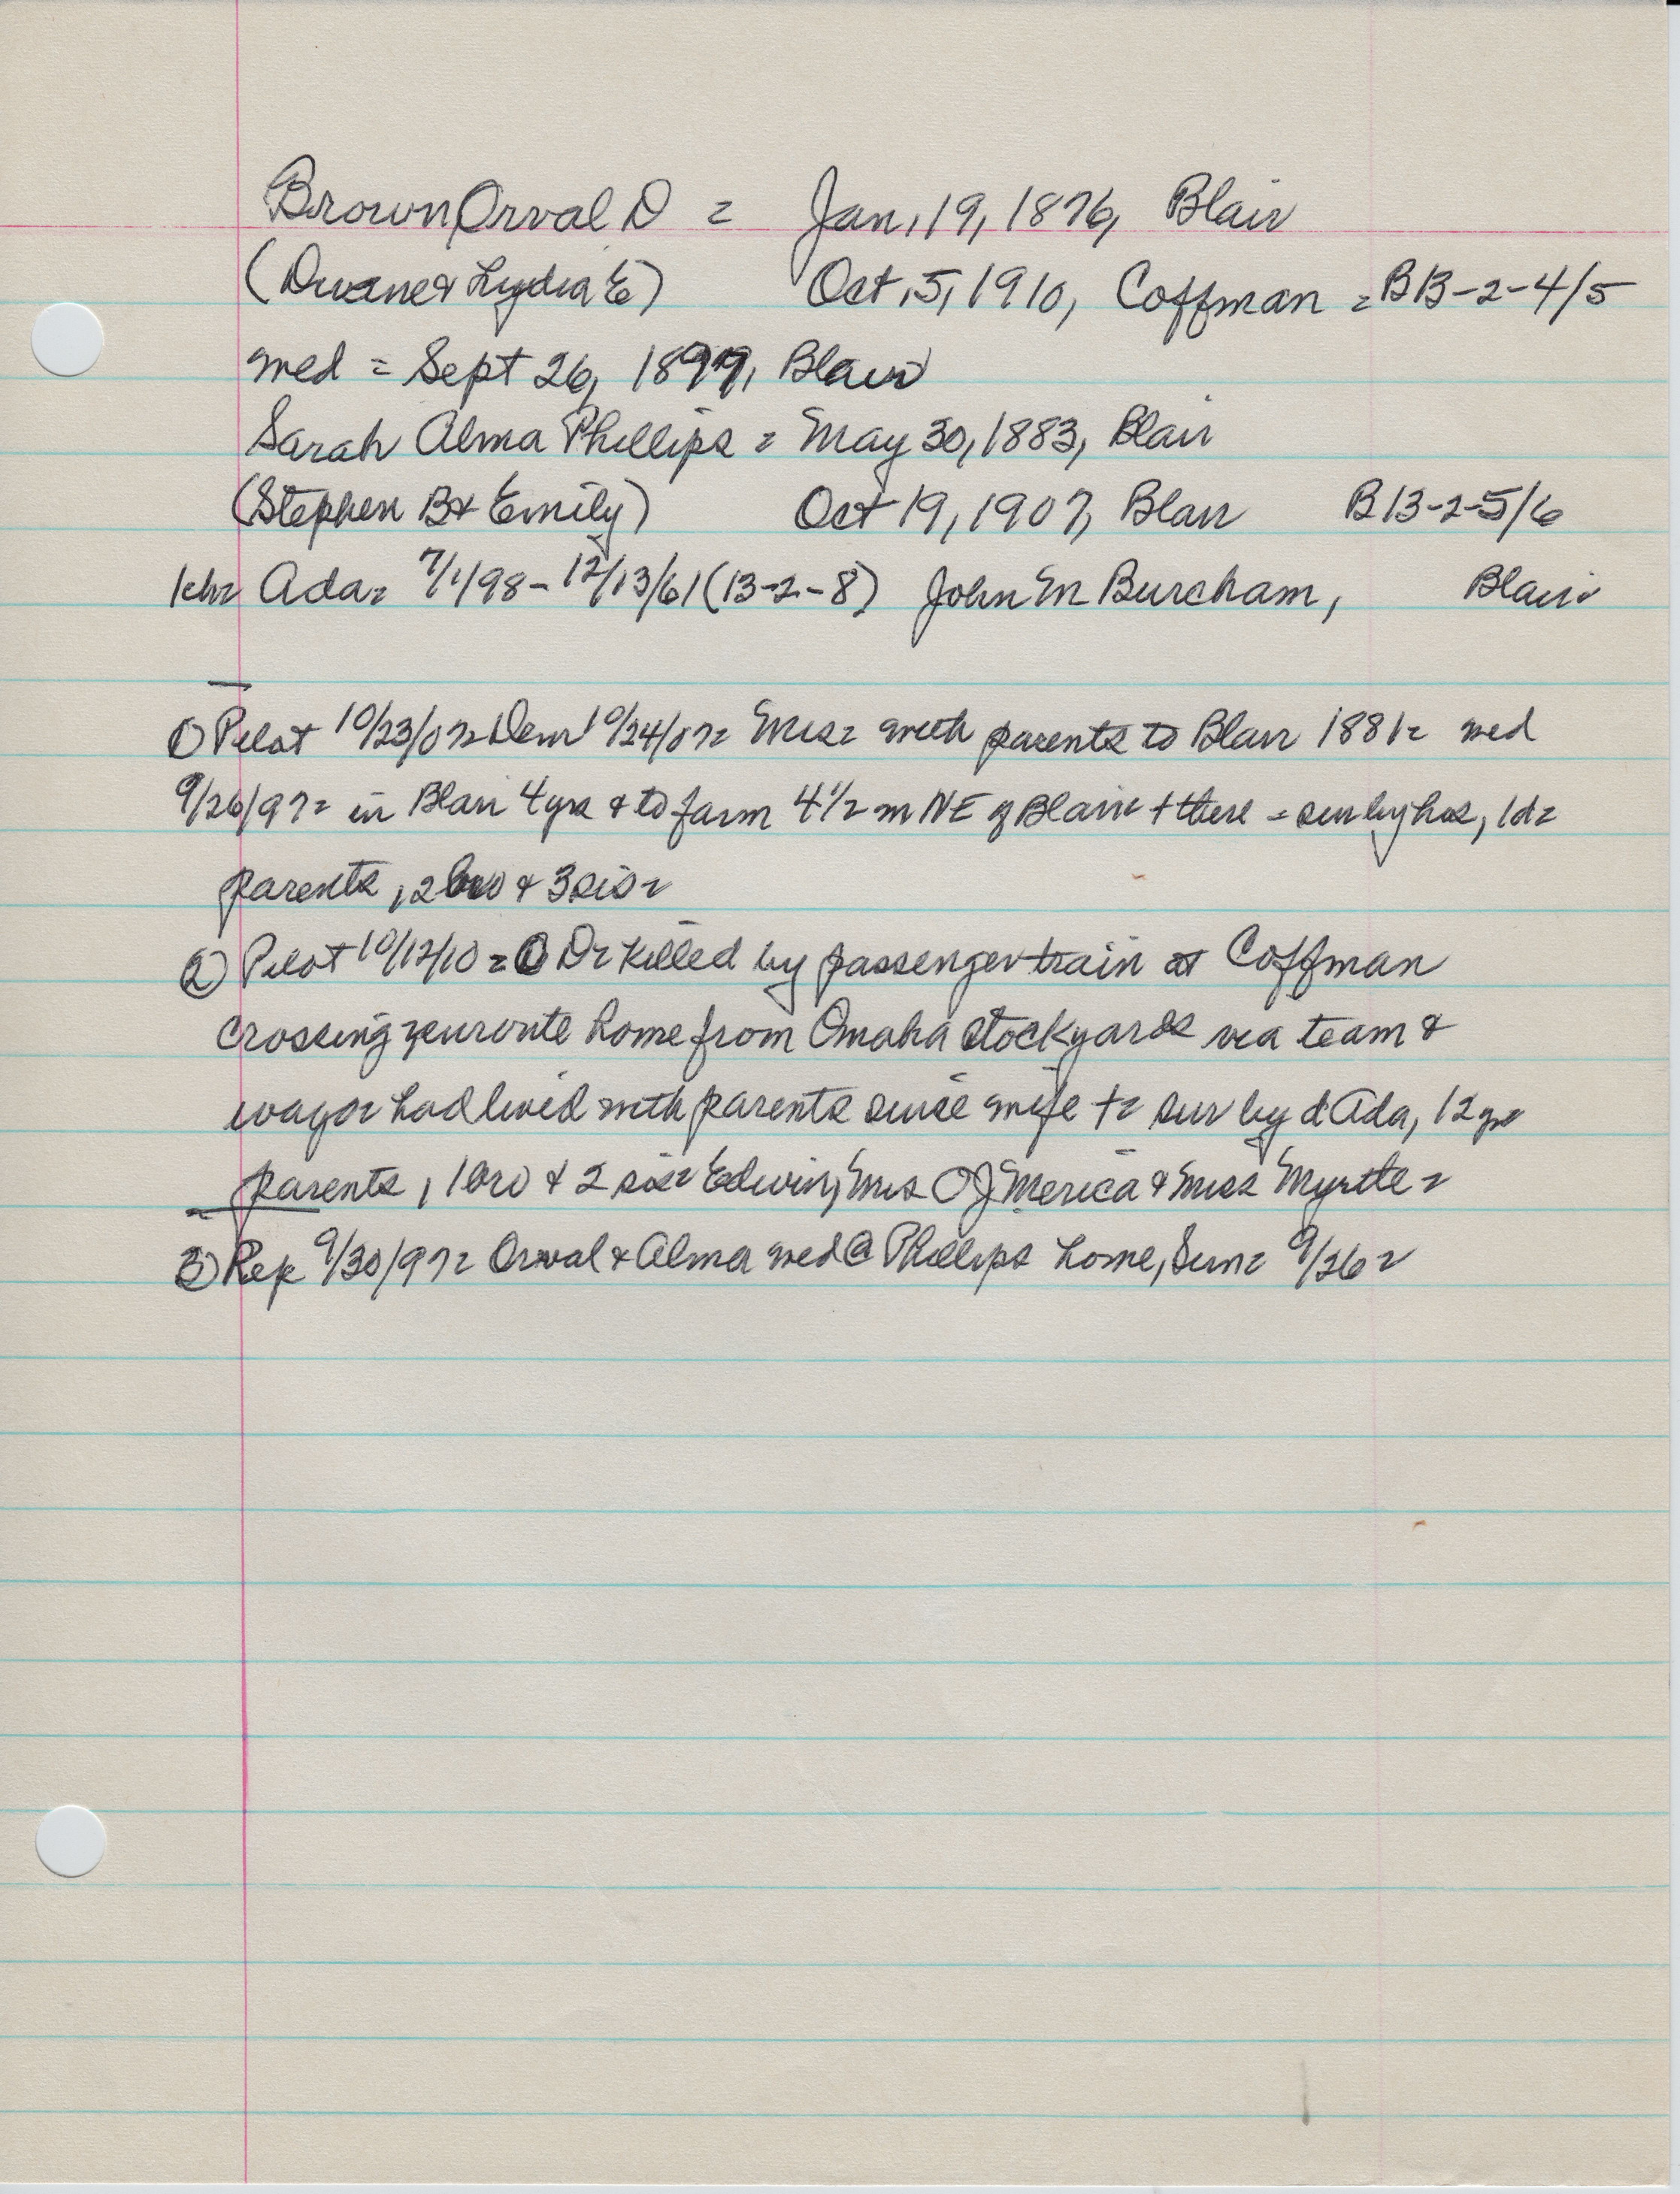 Brown, Orval D = Jan, 19, 1876, Blair
(Duane & Lydia E) Oct, 5, 1910, Coffman = B13-2-4/5
med = Sept 26, 1897, Blair
Sarah Alma Phillips = May 30, 1883, Blair
(Stephen B & Emily) Oct 19, 1907, Blair B13-2-5/6
1ch= Ada= 7/1/98 - 12/13/61 (13-2-8) John M Burcham, Blair
① Pilot 10/23/07= Dem 10/24/07= Mrs= with parents to Blair 1881= med
9/26/97= in Blair 4 yrs & to farm 4 1/2 m NE of Blair + there = sur by hus, 1d=
parents, 2 bro & 3 sis=
② Pilot 10/12/10 = O D= killed by passenger train at Coffman
crossing enroute home from Omaha stockyards via team &
wagon had lived with parents since wife += sur by d Ada, 12 yrs
parents, 1 bro & 2 sis= Edwin, Mrs O J Merica & Miss Myrtle =
3) Rep 9/30/97= Orval & Alma med @ Phillips home, Sun= 9/26=